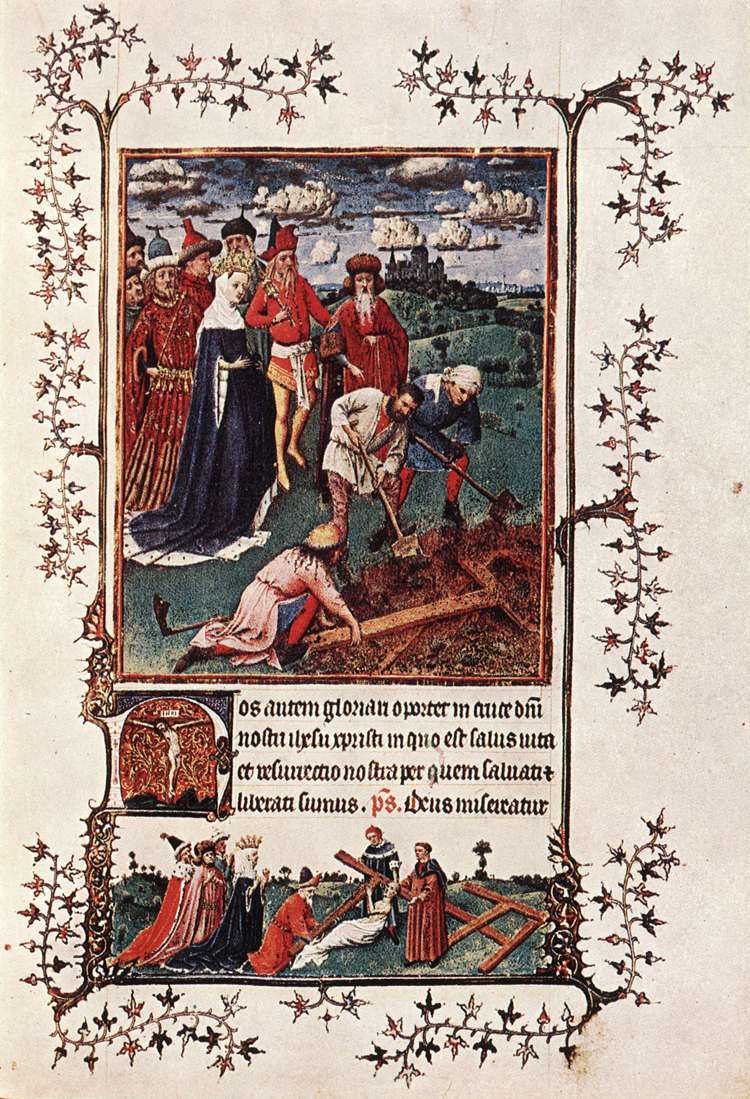 INRI
Nos autem gloriari oportet in cruce dñi
nostri ihesu xpristi in quo est salus uita
et resurrectio nostra per quem saluati ⁊
liberati sumus. ps. Deus misereatur